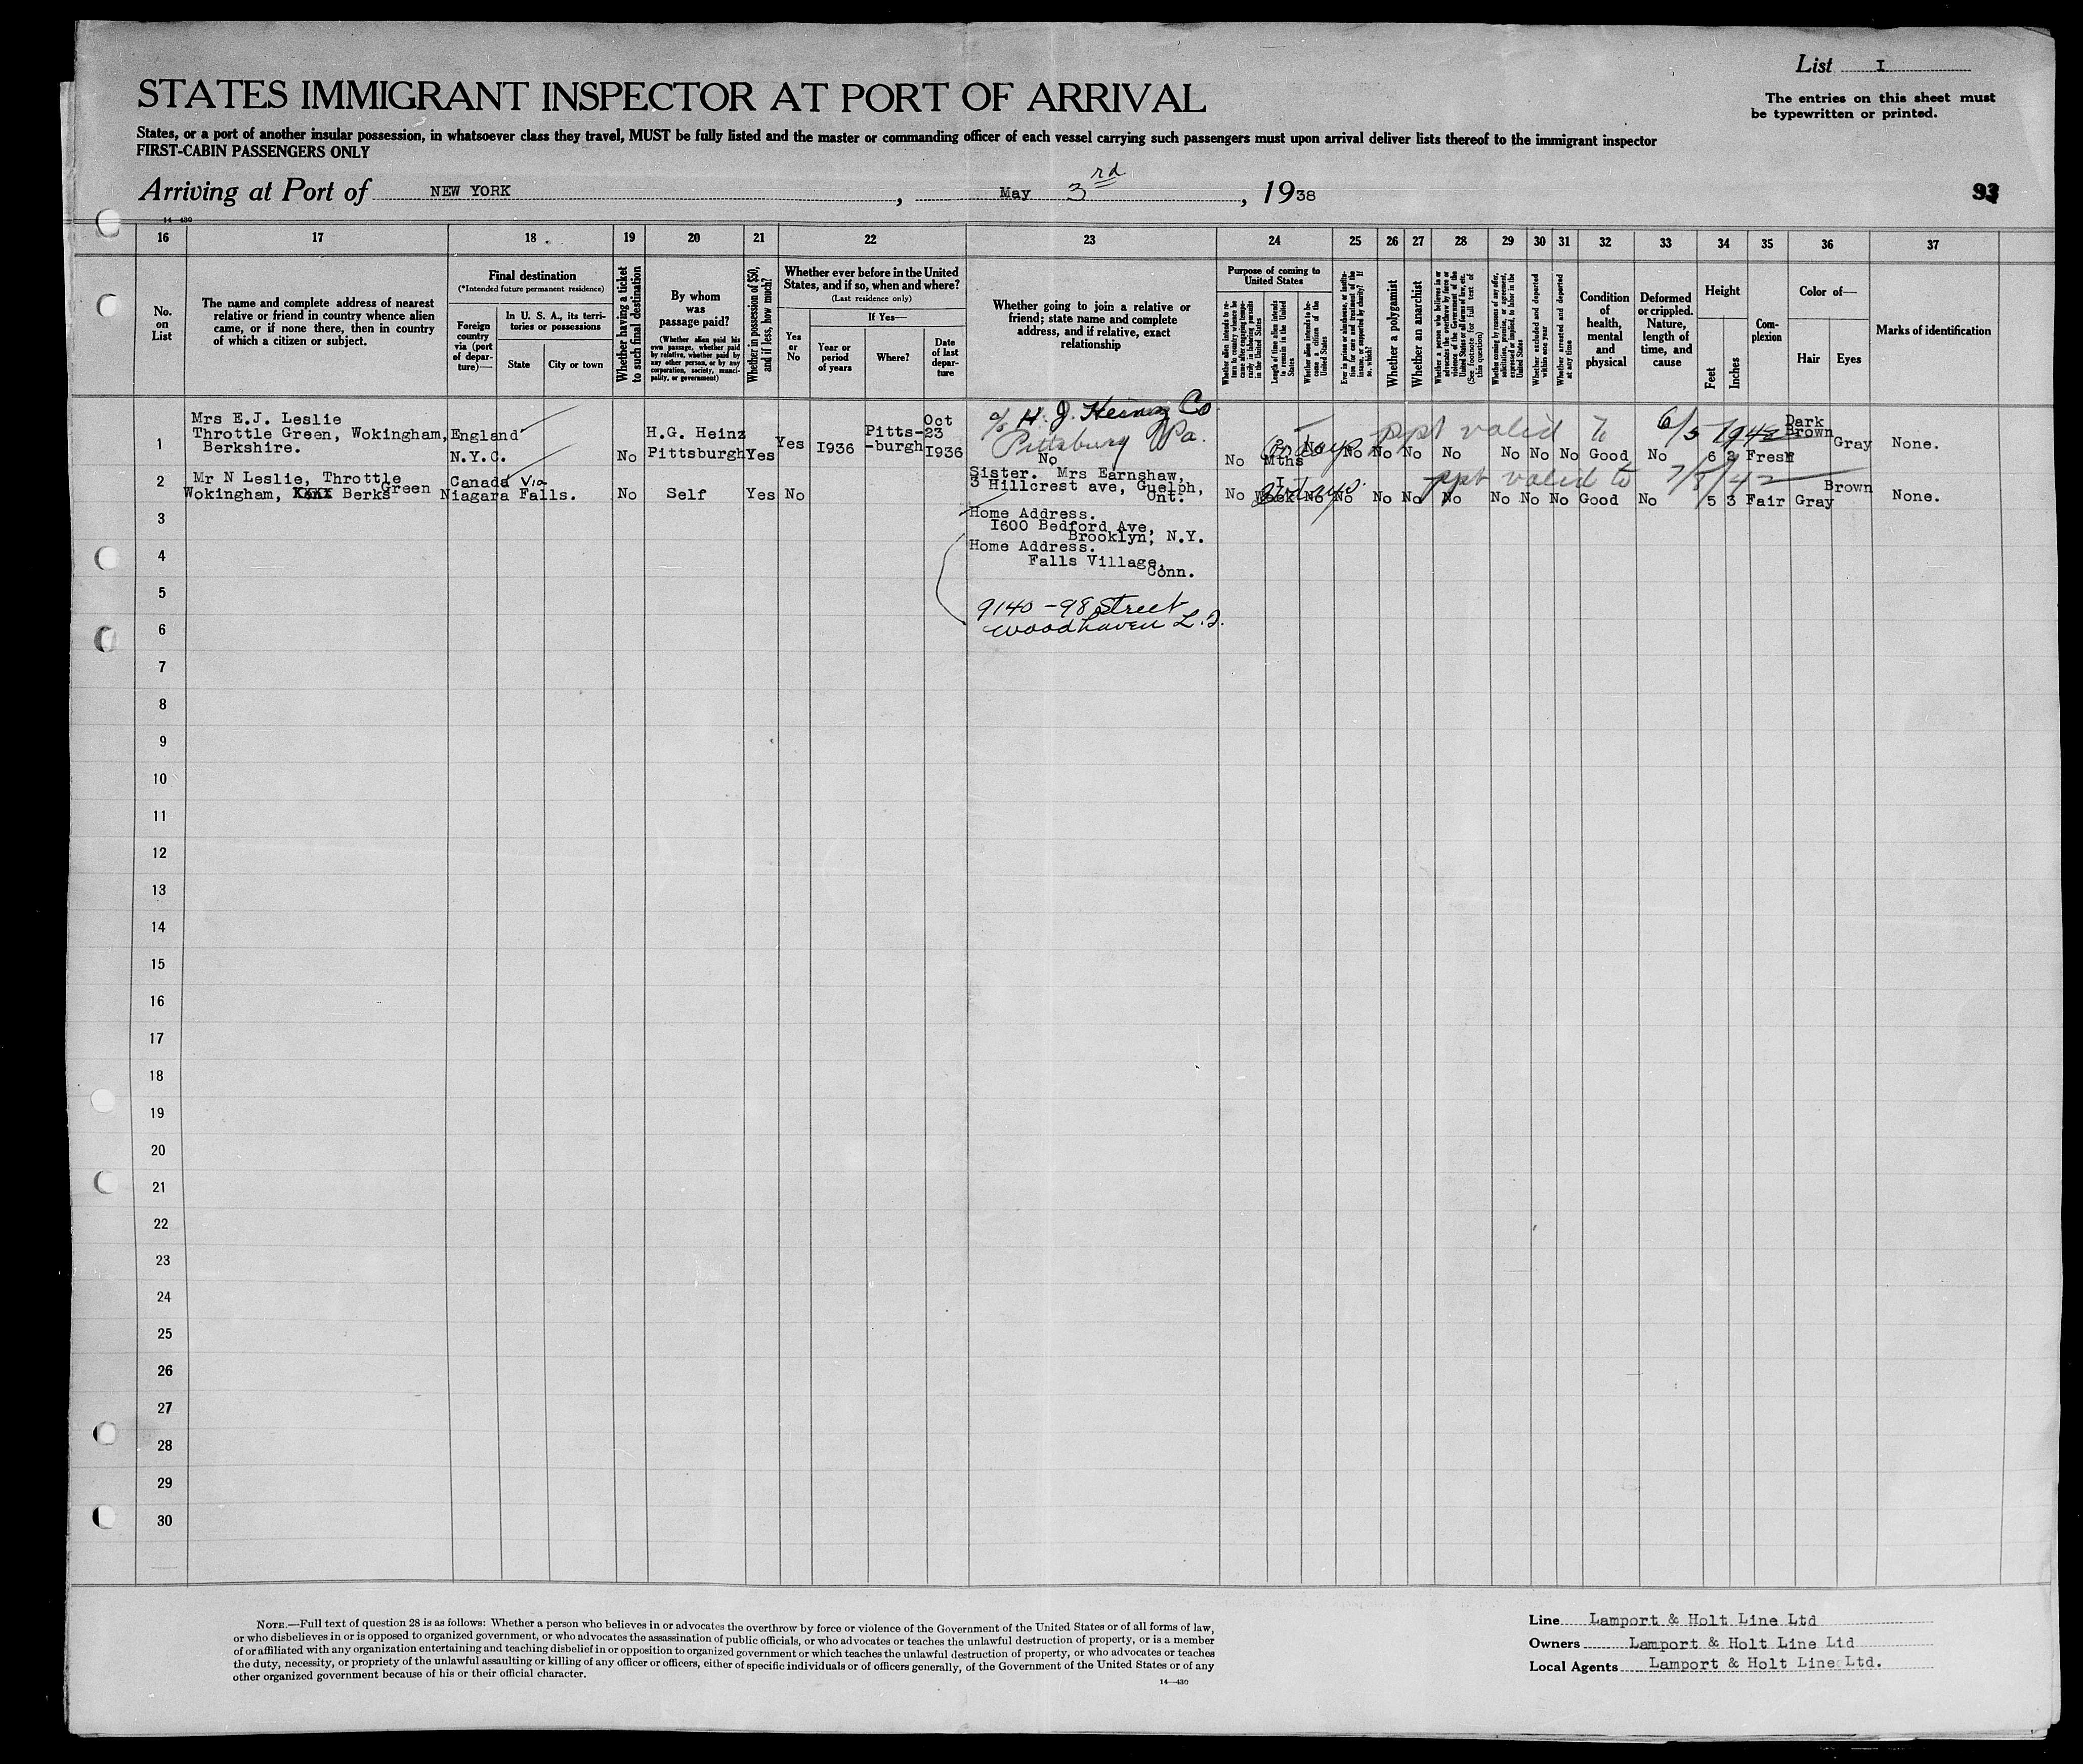 List I
STATES IMMIGRANT INSPECTOR AT PORT OF ARRIVAL
The entries on this sheet must
be typewritten or printed.
States, or a port of another insular possession, in whatsoever class they travel, MUST be fully listed and the master or commanding officer of each vessel carrying such passengers must upon arrival deliver lists thereof to the immigrant inspector
FIRST-CABIN PASSENGERS ONLY
Arriving at Port of NEW YORK, May 3rd, 1938
93
14-430
16 17 18 19 20 21 22 23 24 25 26 27 28 29 30 31 32 33 34 35 36 37
No.
on
List
The name and complete address of nearest
relative or friend in country whence alien
came, or if none there, then in country
of which a citizen or subject.
Final destination
(*Intended future permanent residence)
Foreign
country
via (port
of depar-
ture)—
In U. S. A., its terri-
tories or possessions
State
City or town
Whether having a ticket
to such final destination
By whom
was
passage paid?
(Whether alien paid his
own passage, whether paid
by relative, whether paid by
any other person, or by any
corporation, society, munici-
pality, or government)
Whether in possession of $50,
and if less, how much?
Whether ever before in the United
States, and if so, when and where?
(Last residence only)
Yes
or
No
If Yes—
Year or
period
of years
Where?
Date
of last
depar-
ture
Whether going to join a relative or
friend; state name and complete
address, and if relative, exact
relationship
Purpose of coming to
United States
Whether alien intends to re-
turn to country whence he
came after engaging tempo-
rarily in laboring pursuits
in the United States
Length of time alien intends
to remain in the United
States
Whether alien intends to be-
come a citizen of the
United States
Ever in prison or almshouse, or institu-
tion for care and treatment of the
insane, or supported by charity? If
so, which?
Whether a polygamist
Whether an anarchist
Whether a person who believes in or
advocates the overthrow by force or
violence of the Government of the
United States or all forms of law, etc.
(See footnote for full text of
this question)
Whether coming by reason of any offer,
solicitation, promise, or agreement,
expressed or implied, to labor in the
United States
Whether excluded and deported
within one year
Whether arrested and deported
at any time
Condition
of
health,
mental
and
physical
Deformed
or crippled.
Nature,
length of
time, and
cause
Height
Feet
Inches
Com-
plexion
Color of—
Hair
Eyes
Marks of identification
1
Mrs E.J. Leslie
Throttle Green, Wokingham,
Berkshire.
England
N.Y.C.
No
H.G. Heinz
Pittsburgh
Yes
Yes
I936
Pitts-
-burgh
Oct
23
I936
c/o H. J. Heinz Co
Pittsburg Pa.
No
No
Mths
No No No No No No No Good No 6 2 Fresh
ppt valid to 6/5/1942
Dark
Brown
Gray
None.
2
Mr N Leslie, Throttle
Green
Wokingham, Berks
Canada Via
Niagara Falls.
No
Self
Yes
No
Sister. Mrs Earnshaw,
3 Hillcrest ave, Guelph,
Ont.
No
I
Week
No No No No No No No No Good No 5 3 Fair Gray
ppt valid to 7/5/42
Brown
None.
3
Home Address.
I600 Bedford Ave,
Brooklyn, N.Y.
4
Home Address.
Falls Village,
Conn.
5
9140 - 98 Street
Woodhaven L.I.
6
7
8
9
10
11
12
13
14
15
16
17
18
19
20
21
22
23
24
25
26
27
28
29
30
NOTE.—Full text of question 28 is as follows: Whether a person who believes in or advocates the overthrow by force or violence of the Government of the United States or of all forms of law,
or who disbelieves in or is opposed to organized government, or who advocates the assassination of public officials, or who advocates or teaches the unlawful destruction of property, or is a member
of or affiliated with any organization entertaining and teaching disbelief in or opposition to organized government or which teaches the unlawful destruction of property, or who advocates or teaches
the duty, necessity, or propriety of the unlawful assaulting or killing of any officer or officers, either of specific individuals or of officers generally, of the Government of the United States or of any
other organized government because of his or their official character.
14-430
Line Lamport & Holt Line Ltd
Owners Lamport & Holt Line Ltd
Local Agents Lamport & Holt Line Ltd.